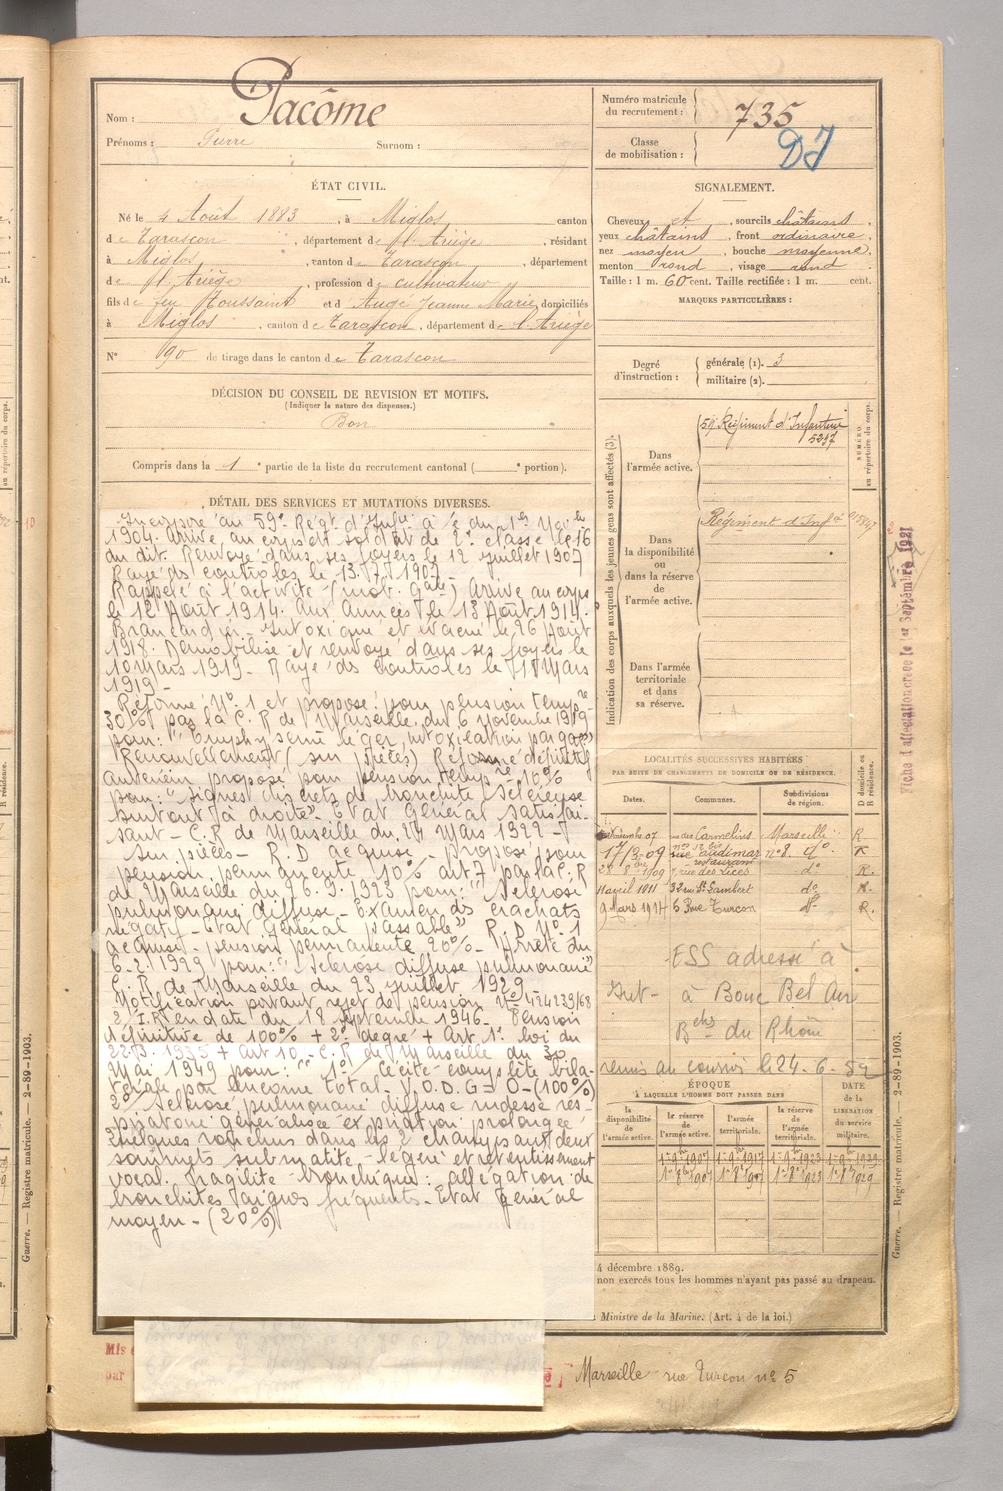 Nom : Pacôme
Prénoms : Pierre Surnom :
ÉTAT CIVIL.
Né le 4 Août 1883, à Miglos, canton
de Tarascon, département de l'Ariège, résidant
à Miglos, canton de Tarascon, département
de l'Ariège, profession de cultivateur
fils de feu Toussaint et d' Augé Jeanne Marie, domiciliés
à Miglos, canton de Tarascon, département de l'Ariège
N° 90 de tirage dans le canton de Tarascon
DÉCISION DU CONSEIL DE REVISION ET MOTIFS.
(Indiquer la nature des dispenses.)
Bon
Compris dans la 1e partie de la liste du recrutement cantonal ( e portion).
DÉTAIL DES SERVICES ET MUTATIONS DIVERSES.
Incorporé au 59e Régt d'Infie à
1904. Arrivé au corps et soldat de 2e classe le 16
du dit. Renvoyé dans ses foyers le 12 juillet 1907
Rayé des contrôles le 13.7.1907 -
Rappelé à l'activité (mob. gale) Arrivé au corps
le 12 Août 1914. Aux Armées le 13 Août 1914.
Brancardier. Intoxiqué et évacué le 26 Août
1918. Démobilisé et renvoyé dans ses foyers le
10 Mars 1919 - Rayé des contrôles le Mars
1919 -
Réformé N° 1 et proposé pour pension tempre
30% par la C. R. de Marseille du 6 Novembre 1919
pour : "Emphysème léger, intoxication par gaz"
Renouvellement (sur pièces) Réforme définitive
antérieure proposé pour pension tempre 10%
pour : "Signes discrets de bronchite scléreuse
surtout à droite" - Etat Général satisfai-
sant - C. R. de Marseille du 24 Mars 1922 -
Sur pièces - R. D. acquise - proposé pour
pension permanente 10% art 7 par la C. R.
de Marseille du 26.9.1923 pour : "Sclérose
pulmonaire diffuse - Examen des crachats
négatif - Etat Général passable" R. D. N° 1
acquise - pension permanente 20% - Arrêté du
6.2.1929 pour : "Sclérose diffuse pulmonaire"
C. R. de Marseille du 23 juillet 1929
Notification portant rejet de pension N° 424239/68
2/I.R. en date du 18 Septembre 1946 - Pension
définitive de 100% + 2° degré + Art 1° loi du
22.3.1935 + Art 10 - C. R. de Marseille du 30
Mai 1949 pour : "1°/ cécité complète bila-
térale par glaucome total. V.O.D.G = 0 - (100%)
2°/ Sclérose pulmonaire diffuse rudesse res-
piratoire généralisée expiration prolongée
quelques ronchus dans les 2 champs aux deux
sommets submatité légère et retentissement
vocal. fragilité bronchique : allégation de
bronchites fréquents - Etat général
moyen - (20%)
Numéro matricule
du recrutement : 735
Classe
de mobilisation : DJ
SIGNALEMENT.
Cheveux et, sourcils châtains,
yeux châtains, front ordinaire,
nez moyen, bouche moyenne,
menton rond, visage rond.
Taille : 1 m. 60 cent. Taille rectifiée : 1 m. cent.
MARQUES PARTICULIÈRES :
Degré
d'instruction :
générale (1). 3
militaire (2).
Indication des corps auxquels les jeunes gens sont affectés (3).
NUMÉRO
au répertoire du corps.
Dans
l'armée active.
59e Régiment d'Infanterie
5297
Dans
la disponibilité
ou
dans la réserve
de
l'armée active.
Régiment d'Infie
Dans l'armée
territoriale
et dans
sa réserve.
Fiche d'affectation créée le 1er Septembre 1921
LOCALITÉS SUCCESSIVES HABITÉES
PAR SUITE DE CHANGEMENTS DE DOMICILE OU DE RÉSIDENCE.
Dates. Communes. Subdivisions de région. D domicile ou R résidence.
07 rue des Carmelins Marseille R
17/3-09 rue audimar n° 8. do R
1909 7, rue des Lices do R.
11 avril 1911 32 rue St Lambert do R.
9 Mars 1914 5 Rue Turcon do R.
ESS adressé à
Int- à Bouc Bel Air
Bches du Rhône
remis au courrier le 24-6-52
ÉPOQUE
À LAQUELLE L'HOMME DOIT PASSER DANS
DATE
de la
LIBÉRATION
du service
militaire.
la disponibilité de l'armée active.
la réserve de l'armée active.
l'armée territoriale.
la réserve de l'armée territoriale.
1er 9bre 1907 1er 9bre 1917 1er 9bre 1923 1er 9bre 1929
1er 8bre 1907 1er 8bre 1917 1er 8bre 1923 1er 8bre 1929
4 décembre 1889.
non exercés tous les hommes n'ayant pas passé au drapeau.
Ministre de la Marine. (Art. 4 de la loi.)
Mis
par
Marseille rue Turcon n° 5
Guerre. — Registre matricule. — 2-89-1903.
Guerre. — Registre matricule. — 2-89-1903.